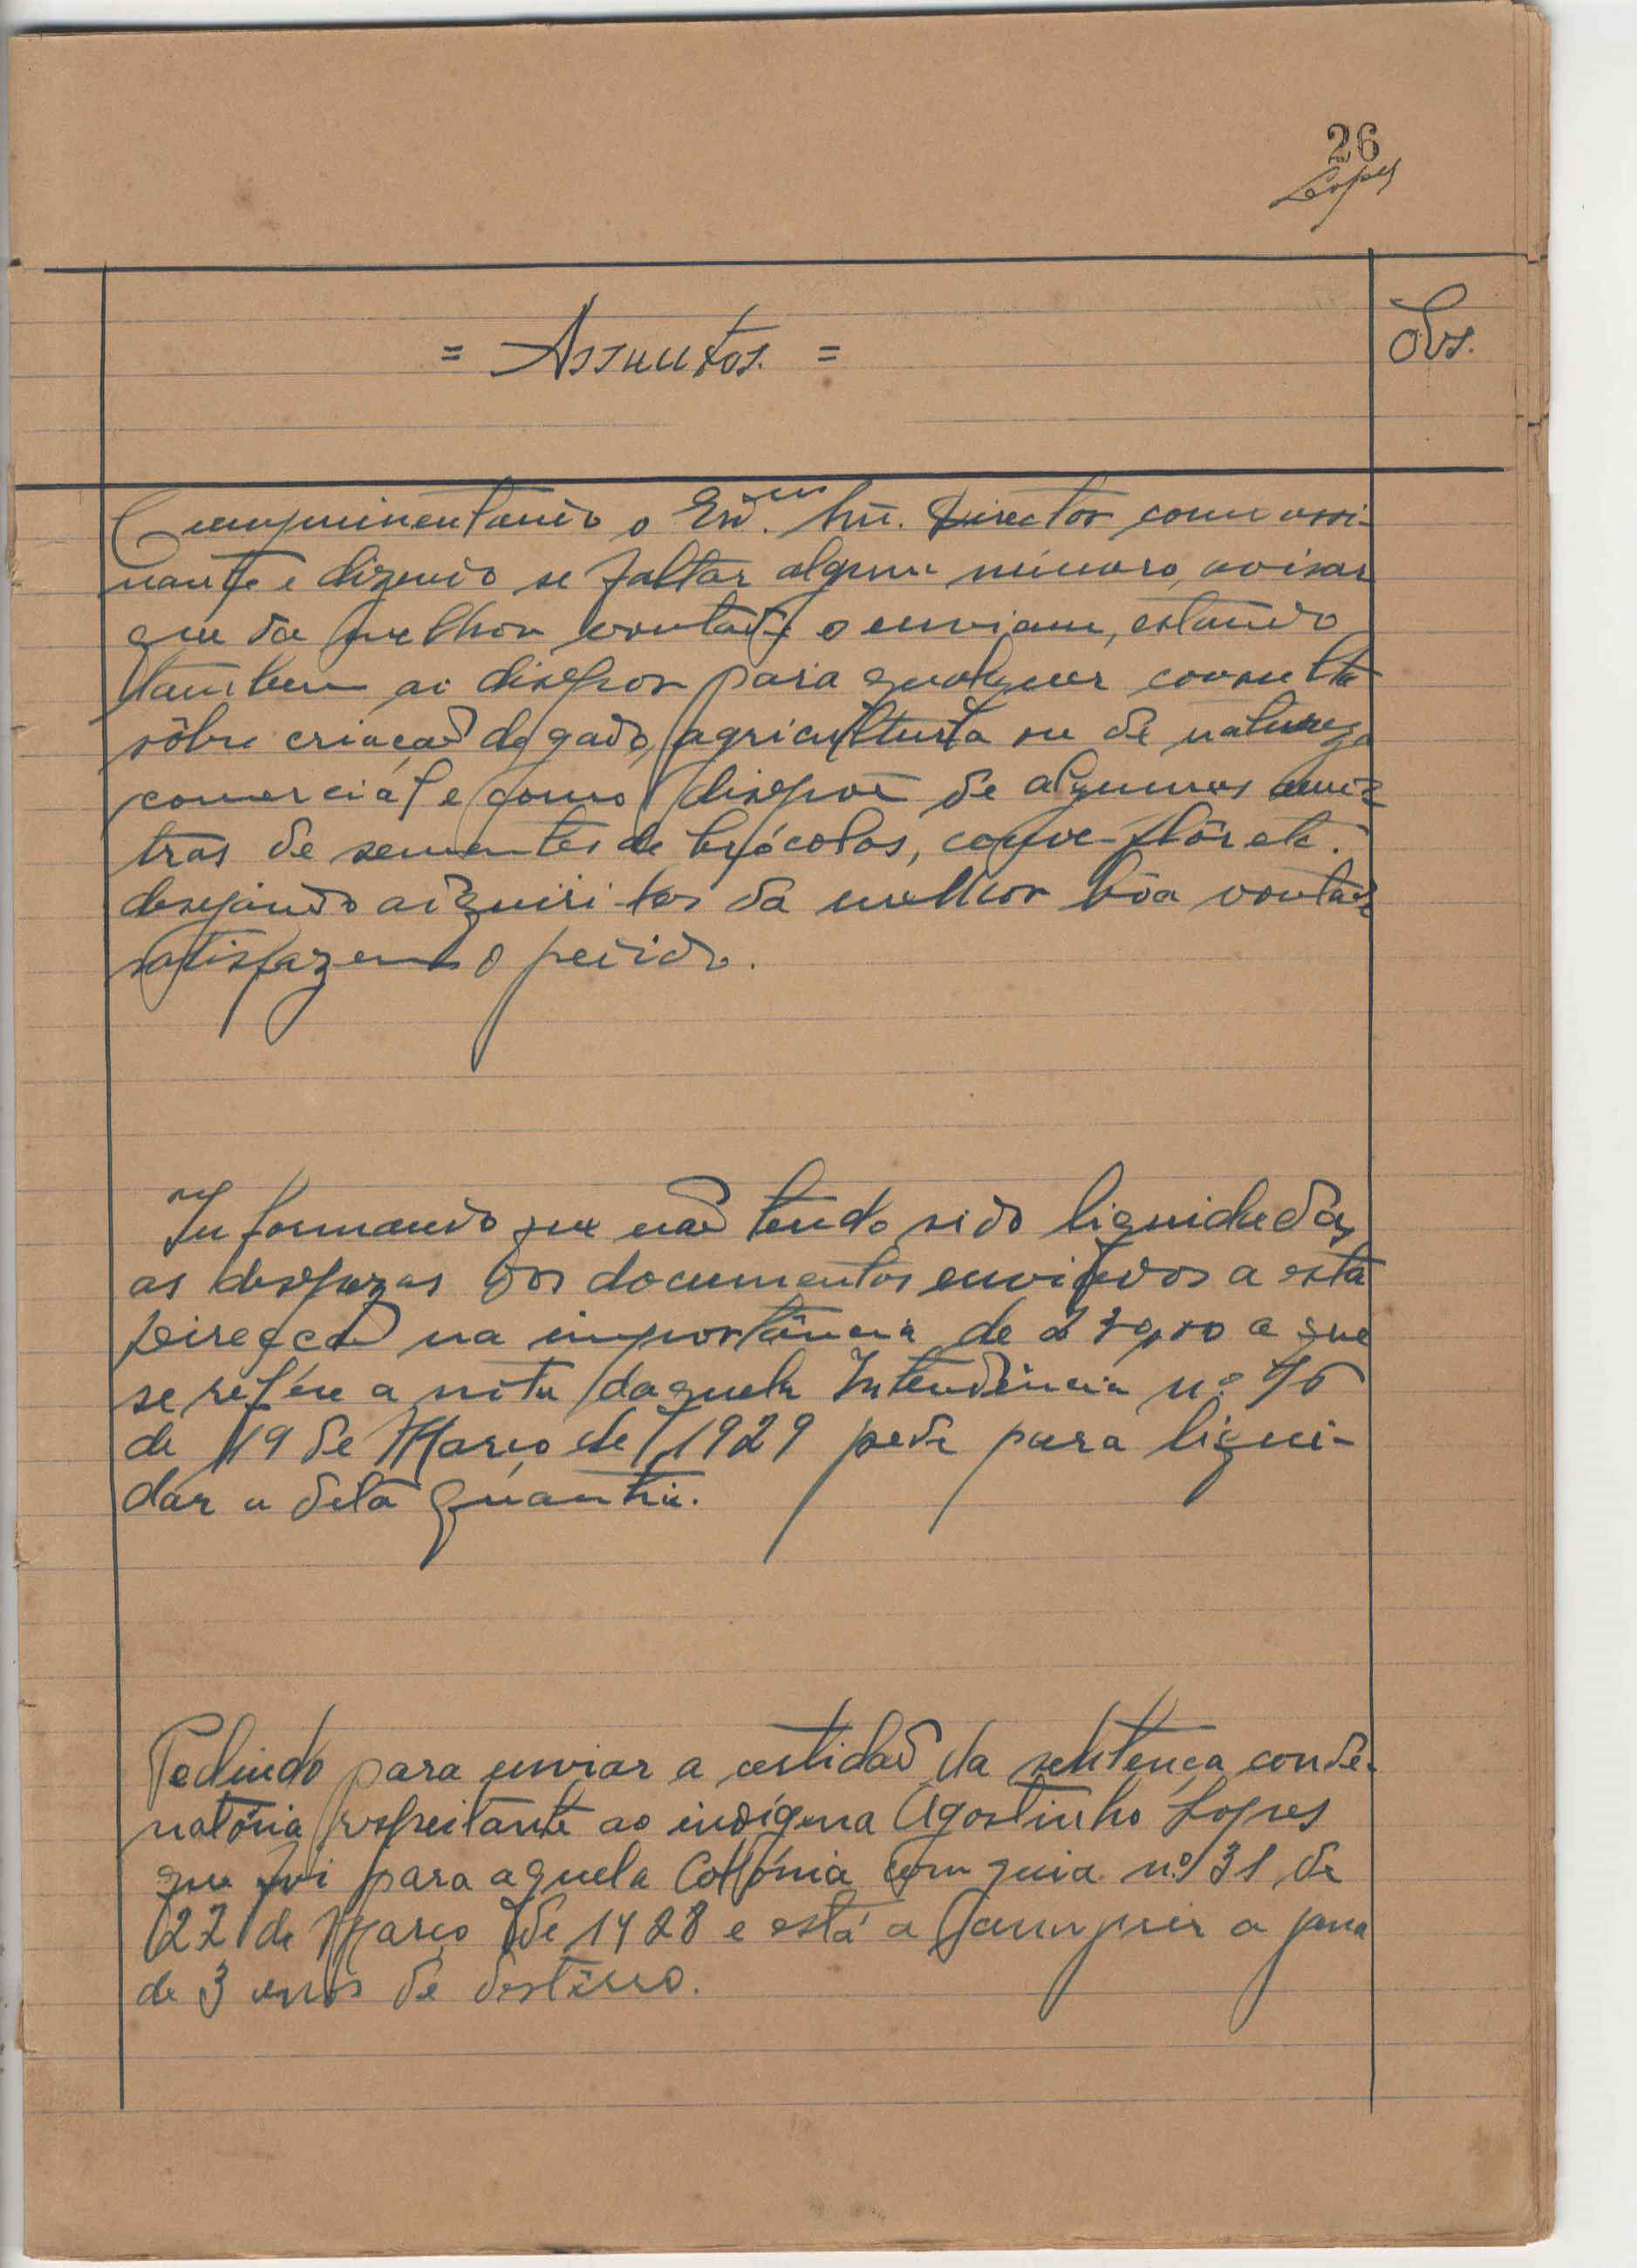 26
Lopes
= Assuntos. =
Obs.
Cumprimentando o Exm.º Snr. Director como assi-
nante e dizendo se faltar algum número, avisar
que da melhor vontade o enviam, estando
tambem ao dispor para qualquer consulta
sôbre criação de gado, agricultura ou de natureza
comerciál e como dispoe de algumas amos-
tras de sementes de brócolos, couve-flôr etc.
desejando adquiri-las da melhor bôa vontade
satisfazem o pedido.
Informando que não tendo sido liquidadas
as despezas dos documentos enviados a esta
Direcção na importância de a que
se refére a nota daquela Intendência n.º
de 19 de Março de 1929 pede para liqui-
dar a dita quantia.
Pedindo para enviar a certidão da sentença conde-
natória respeitante ao indígena Agostinho Lopes
que foi para aquela Colónia com guia n.º 31 de
22 de Março de 1928 e está a cumprir a pena
de 3 anos de destêrro.